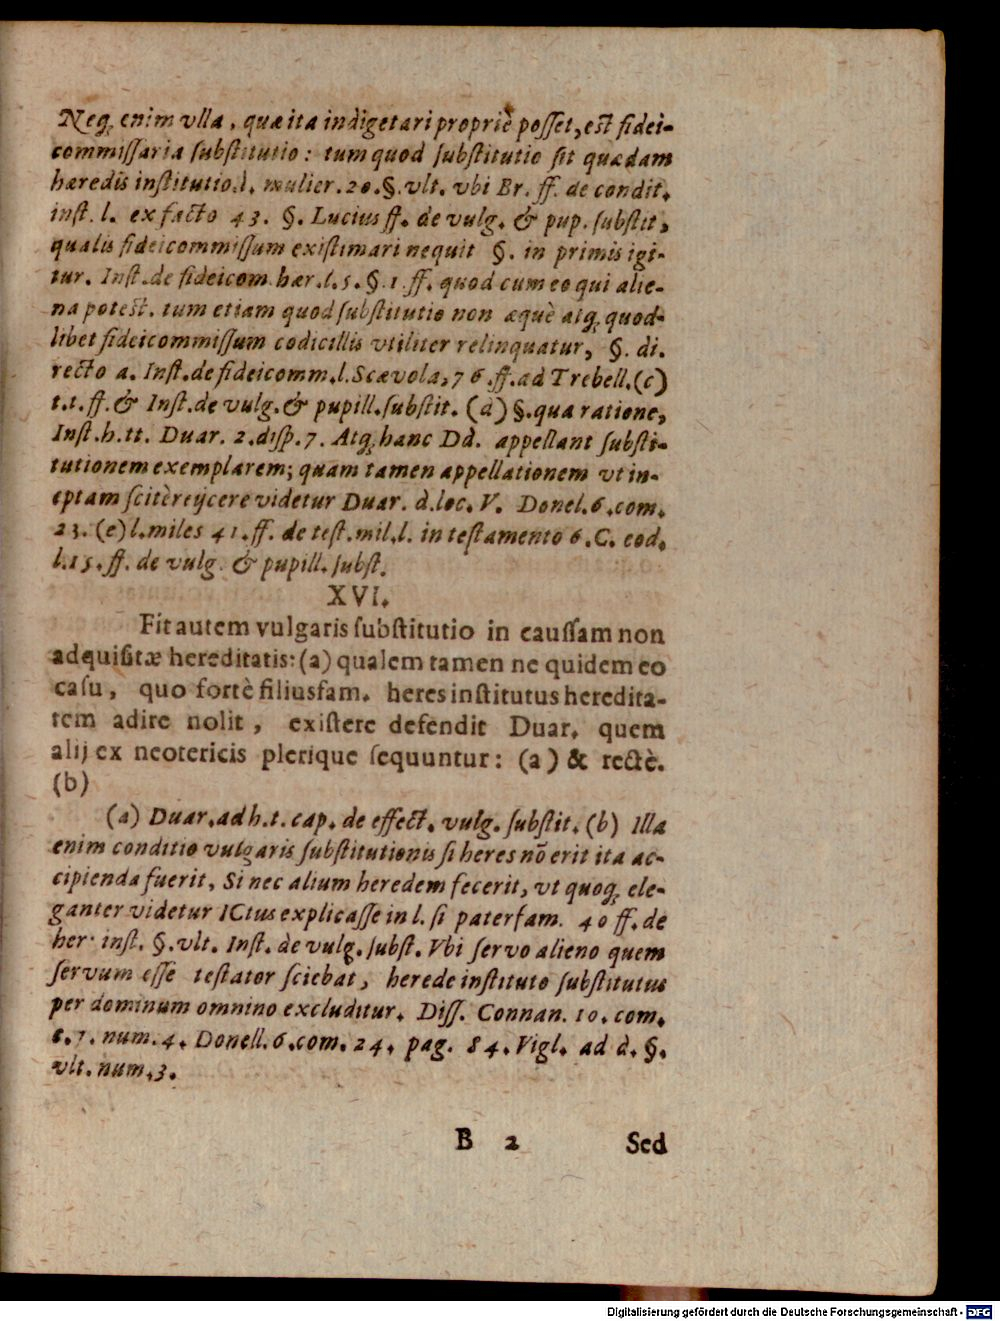 Neq; enim vlla, quæ ita indigetari propriè posset, est fidei-
commissaria substitutio: tum quod substitutio sit quædam
hæredis institutio. l. mulier. 20. §. vlt. vbi Br. ff. de condit.
inst. l. ex facto 43. §. Lucius ff. de vulg. & pup. substit,
qualis fideicommissum existimari nequit §. in primis igi-
tur. Inst. de fideicom. hær. l. 5. §. 1. ff. quod cum eo qui alie-
na potest. tum etiam quod substitutio non æquè atq; quod-
libet fideicommissum codicillis vtiliter relinquatur, §. di.
recto a. Inst. de fideicomm. l. Scævola, 76. ff. ad Trebell. (c)
t.t. ff. & Inst. de vulg. & pupill. substit. (d) §. qua ratione,
Inst. h. tt. Duar. 2. disp. 7. Atq; hanc Dd. appellant substi-
tutionem exemplarem; quam tamen appellationem vt in-
eptam scitè reijcere videtur Duar. d. loc. V. Donel. 6. com.
23. (e) l. miles 41. ff. de test. mil. l. in testamento 6. C. eod.
l. 15. ff. de vulg. & pupill. subst.
XVI.
Fit autem vulgaris substitutio in caussam non
adquisitæ hereditatis: (a) qualem tamen ne quidem eo
casu, quo fortè filiusfam. heres institutus heredita-
tem adire nolit, existere defendit Duar. quem
alij ex neotericis plerique sequuntur: (a) & rectè.
(b)
(a) Duar. ad h. t. cap. de effect. vulg. substit. (b) Illa
enim conditio vulgaris substitutionis si heres nō erit ita ac-
cipienda fuerit, Si nec alium heredem fecerit, vt quoq; ele-
ganter videtur ICtus explicasse in l. si paterfam. 40 ff. de
her. inst. §. vlt. Inst. de vulg. subst. Vbi servo alieno quem
servum esse testator sciebat, herede instituto substitutus
per dominum omnino excluditur. Diss. Connan. 10. com.
num. 4. Donell. 6. com. 24. pag. 84. Vigl. ad d. §.
vlt. num. 3.
B 2 Sed
Digitalisierung gefördert durch die Deutsche Forschungsgemeinschaft - DFG